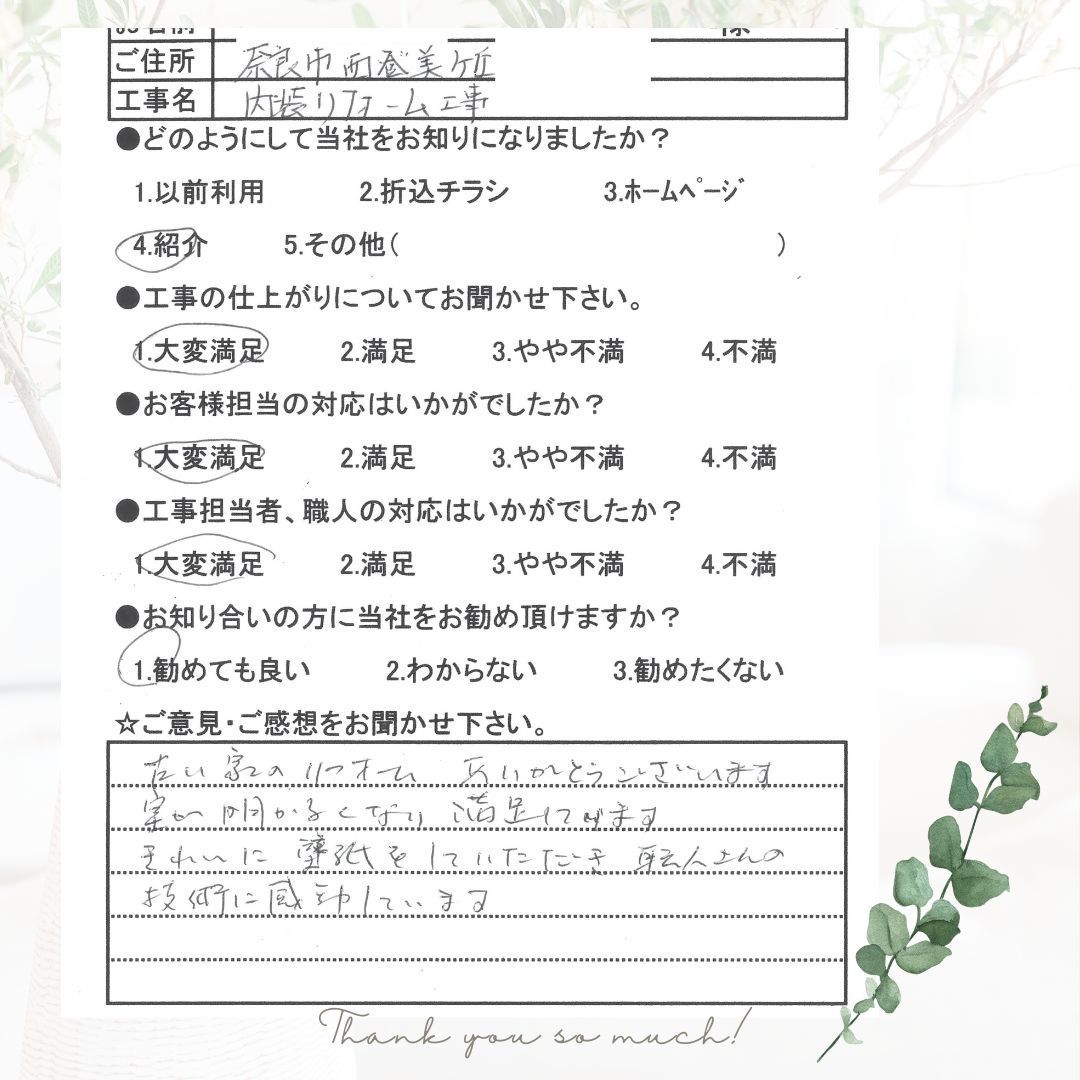 お名前 様
ご住所 奈良市西登美ヶ丘
工事名 内装リフォーム工事
●どのようにして当社をお知りになりましたか？
1.以前利用 2.折込チラシ 3.ﾎｰﾑﾍﾟｰｼﾞ
4.紹介 5.その他( )
●工事の仕上がりについてお聞かせ下さい。
1.大変満足 2.満足 3.やや不満 4.不満
●お客様担当の対応はいかがでしたか？
1.大変満足 2.満足 3.やや不満 4.不満
●工事担当者、職人の対応はいかがでしたか？
1.大変満足 2.満足 3.やや不満 4.不満
●お知り合いの方に当社をお勧め頂けますか？
1.勧めても良い 2.わからない 3.勧めたくない
☆ご意見・ご感想をお聞かせ下さい。
古い家のリフォーム ありがとうございます
室が明かるくなり 満足しています
きれいに 壁紙をしていただき 職人さんの
技術に感動しています
Thank you so much!